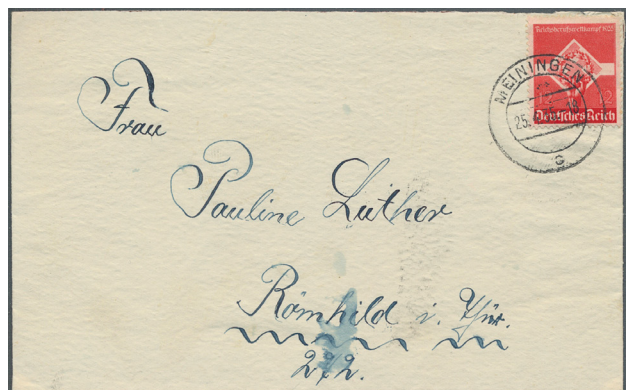 Reichsberufswettkampf 1935
12
Deutsches Reich
MEININGEN
25.
c
Frau
Pauline Luther
Römhild i. Thür.
272.